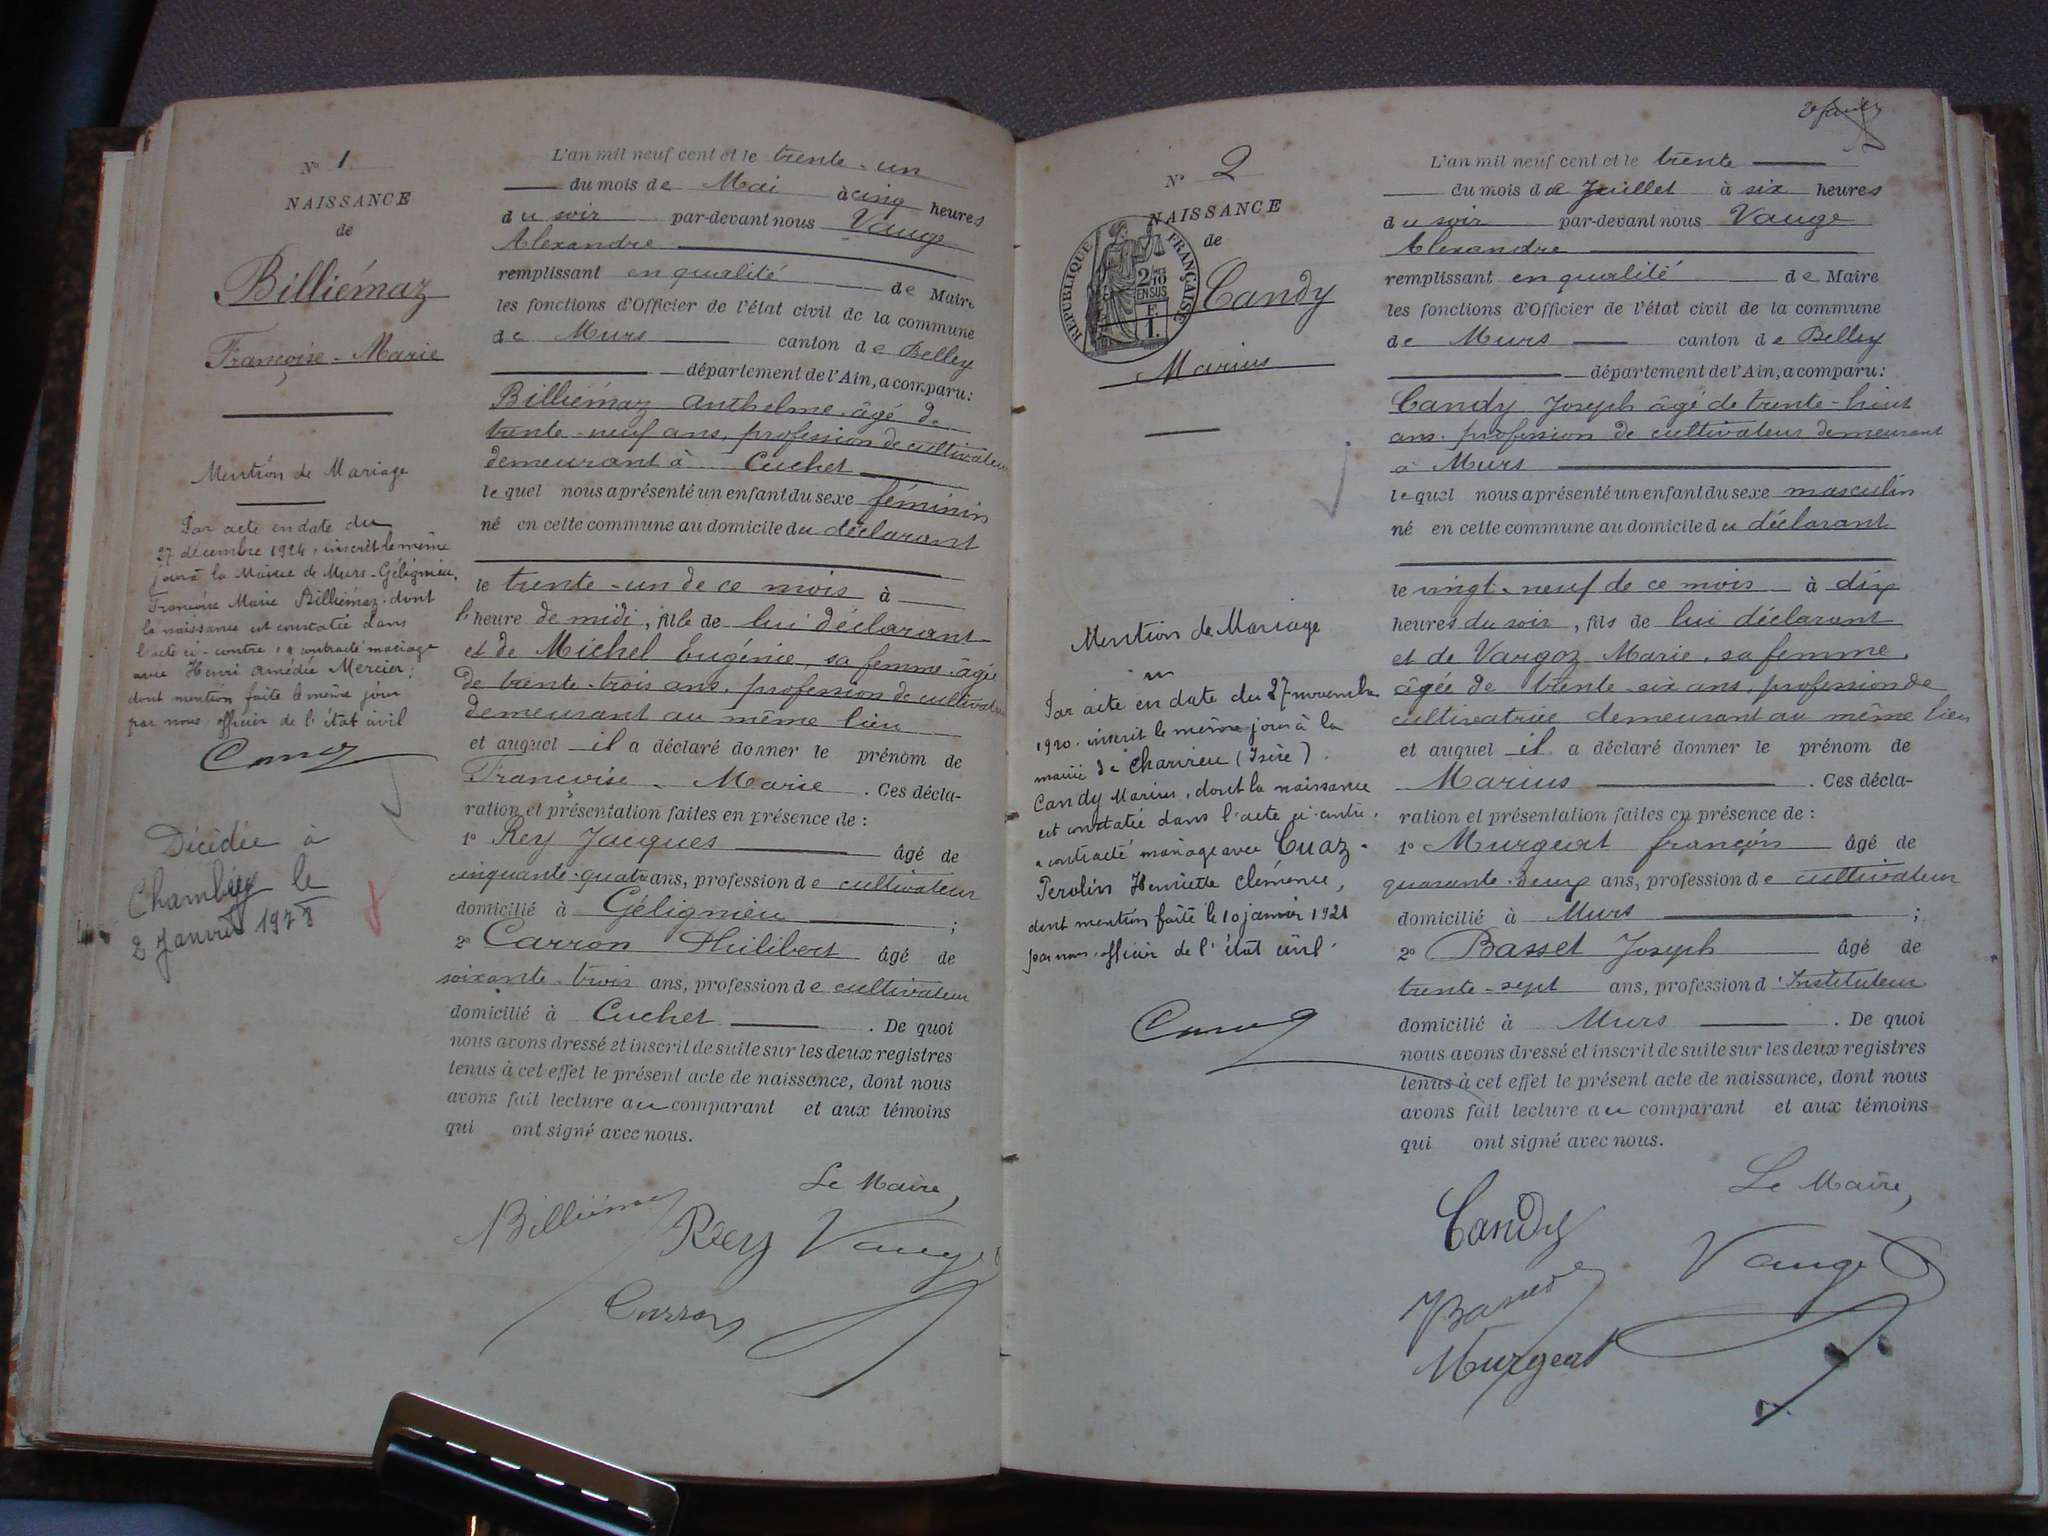 N° 1
NAISSANCE
de
Billiémaz
Françoise-Marie
Mention de Mariage
Par acte en date du
27 décembre 1924, inscrit le même
jour à la Mairie de Murs-Gélignieu,
Françoise Marie Billiémaz dont
la naissance est constatée dans
l'acte ci-contre, a contracté mariage
avec Henri Amédée Mercier;
dont mention faite le même jour
par nous, officier de l'état civil
Décédée à
Chambéry le
2 Janvier 1978
L'an mil neuf cent et le trente-un
du mois de Mai à cinq heures
du soir par-devant nous Vauge
Alexandre
remplissant en qualité de Maire
les fonctions d'Officier de l'état civil de la commune
de Murs canton de Belley
département de l'Ain, a comparu:
Billiémaz Anthelme, âgé de
trente-neuf ans, profession de cultivateur
demeurant à Cuchet
lequel nous a présenté un enfant du sexe féminin
né en cette commune au domicile du déclarant
le trente-un de ce mois à
l'heure de midi, fille de lui déclarant
et de Michel Eugénie, sa femme, âgée
de trente-trois ans, profession de cultivatrice
demeurant au même lieu
et auquel il a déclaré donner le prénom de
Françoise-Marie. Ces décla-
ration et présentation faites en présence de:
1° Rey Jacques âgé de
cinquante-quatre ans, profession de cultivateur
domicilié à Gélignieu;
2° Carron Philibert âgé de
soixante-trois ans, profession de cultivateur
domicilié à Cuchet. De quoi
nous avons dressé et inscrit de suite sur les deux registres
tenus à cet effet le présent acte de naissance, dont nous
avons fait lecture au comparant et aux témoins
qui ont signé avec nous.
Le Maire,
Billiémaz Rey Vauge
Carron
N° 2
NAISSANCE
de
RÉPUBLIQUE FRANÇAISE
2/10
EN SUS
F
1.
Candy
Marius
Mention de Mariage
Par acte en date du 27 novembre
1920, inscrit le même jour à la
mairie de Charvieu (Isère).
Candy Marius, dont la naissance
est constatée dans l'acte ci-contre,
a contracté mariage avec Cuaz-
Perolin Henriette Clémence,
dont mention faite le 10 janvier 1921
par nous, officier de l'état civil.
L'an mil neuf cent et le trente
du mois de Juillet à six heures
du soir par-devant nous Vauge
Alexandre
remplissant en qualité de Maire
les fonctions d'Officier de l'état civil de la commune
de Murs canton de Belley
département de l'Ain, a comparu:
Candy Joseph âgé de trente-huit
ans, profession de cultivateur demeurant
à Murs
lequel nous a présenté un enfant du sexe masculin
né en cette commune au domicile du déclarant
le vingt-neuf de ce mois à dix
heures du soir, fils de lui déclarant
et de Vargoz Marie, sa femme,
âgée de trente-six ans, profession de
cultivatrice demeurant au même lieu
et auquel il a déclaré donner le prénom de
Marius. Ces décla-
ration et présentation faites en présence de:
1° Murgeat françois âgé de
quarante-deux ans, profession de cultivateur
domicilié à Murs;
2° Basset Joseph âgé de
trente-sept ans, profession d'Instituteur
domicilié à Murs. De quoi
nous avons dressé et inscrit de suite sur les deux registres
tenus à cet effet le présent acte de naissance, dont nous
avons fait lecture au comparant et aux témoins
qui ont signé avec nous.
Le Maire,
Candy
Vauge
Basset
Murgeat